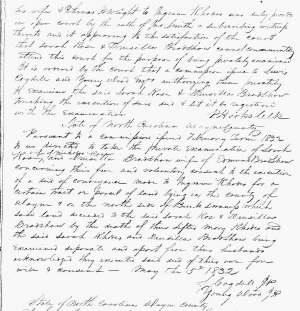 wife of Thomas Wright to Ingram Rhodes was duly proven
in open court by the oath of Jno Smith a subscribing witness
thereto and it appearing to the satisfaction of the court
that Sarah Rose & Drusillas Bradshaw cannot conveniently
attend this court for the purpose of being privately examined
It is ordered by the court that a commission issue to Lewis
Cogdell and Young Wood Esqrs authorizing them privately
to examine the said Sarah Rose & Drusillas Bradshaw
touching the execution of said deed & let it be registered
with the Examination
P Hooks clk
State of North Carolina Wayne County
Pursuant to a commission issued February Term 1832
to us directed to take the private Examination of Sarah
Rose, and Drusilla Bradshaw wife of Bradshaw
concerning their free and voluntary consent to the execution
of a deed of conveyance made to Ingram Rhodes for a
certain tract or parcel of land lying in the county of
Wayne & on the north side of Buck Swamp which
said land decended to the said Sarah Rose & Drusillas
Bradshaw by the death of their sister Mary Rhodes and
the said Sarah Rhodes and Drusillas Bradshaw being
examined seperate and apart from their husbands
acknowledge they executed said deed of their own free
will & consent — May the 5th 1832
Cogdell JP
Young Wood JP
State of North Carolina Wayne County